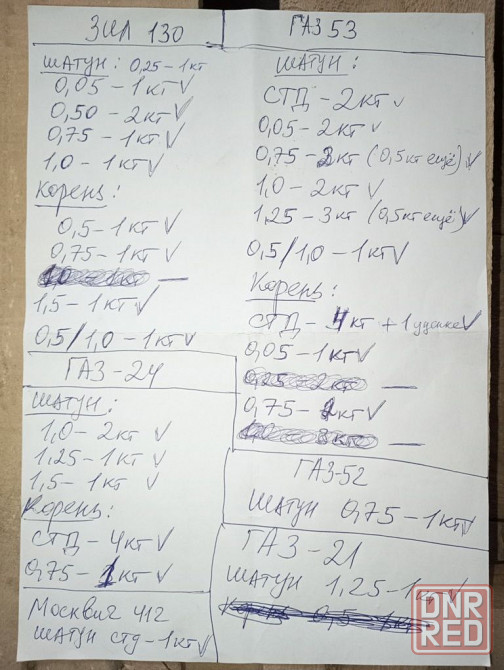 ЗИЛ 130
ШАТУН: 0,25 - 1кт
0,05 - 1кт
0,50 - 2кт
0,75 - 1кт
1,0 - 1кт
Корень:
0,5 - 1кт
0,75 - 1кт
1,5 - 1кт
0,5/1,0 - 1кт
ГАЗ-24
ШАТУН:
1,0 - 2кт
1,25 - 1кт
1,5 - 1кт
Корень:
СТД - 4кт
0,75 - 1кт
Москвич 412
ШАТУН стд - 1кт
ГАЗ 53
ШАТУН:
СТД - 2кт
0,05 - 2кт
0,75 - 2кт (0,5кт ещё)
1,0 - 2кт
1,25 - 3кт (0,5кт ещё)
0,5/1,0 - 1кт
Корень:
СТД - 4кт + 1
0,05 - 1кт
0,25 - 2кт
0,75 - 1кт
ГАЗ-52
ШАТУН 0,75 - 1кт
ГАЗ - 21
ШАТУН 1,25 - 1кт
Корень 0,5 - 1кт
DNR
RED